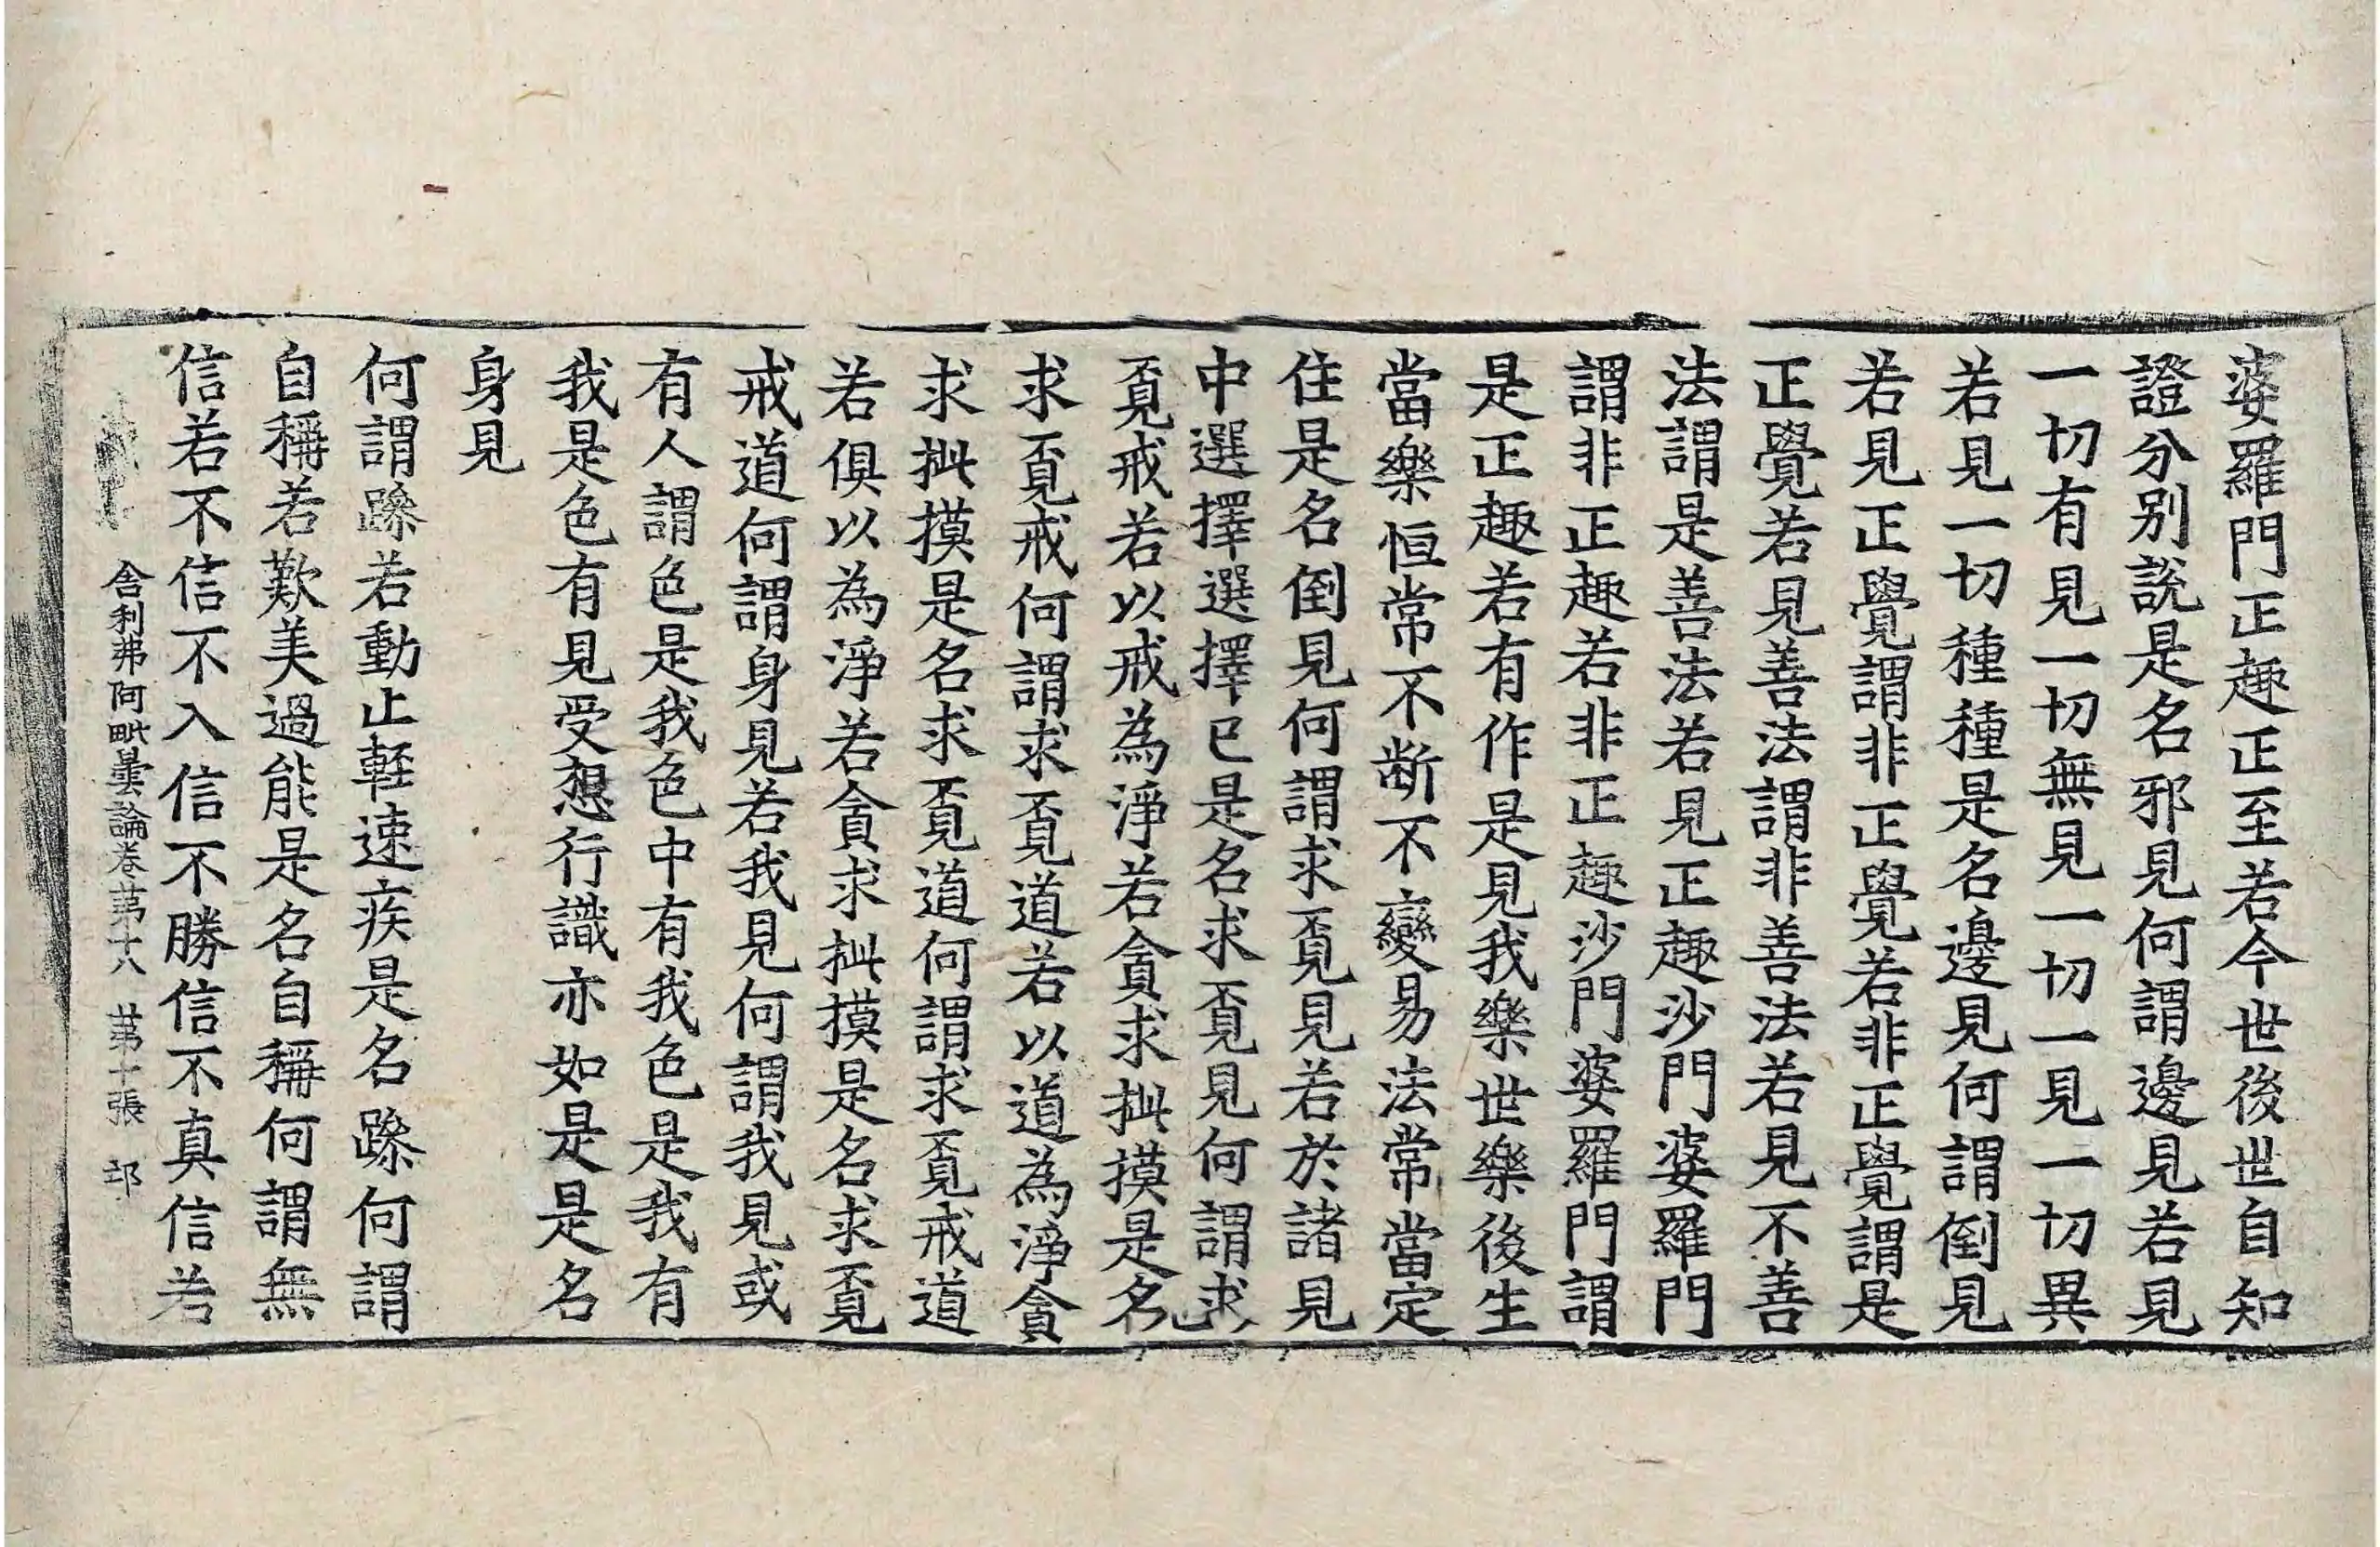 婆羅門正趣正至若今世後世自知
證分別說是名邪見何謂邊見若見
一切有見一切無見一切一見一切異
若見一切種種是名邊見何謂倒見
若見正覺謂非正覺若非正覺謂是
正覺若見善法謂非善法若見不善
法謂是善法若見正趣沙門婆羅門
謂非正趣若非正趣沙門婆羅門謂
是正趣若有作是見我樂世樂後生
當樂恒常不断不變易法常當定
住是名倒見何謂求覔見若於諸見
中選擇選擇已是名求覔見何謂求
覔戒若以戒為淨若貪求㧗摸是名
求覔戒何謂求覔道若以道為淨貪
求㧗摸是名求覔道何謂求覔戒道
若俱以為淨若貪求㧗摸是名求覔
戒道何謂身見若我見何謂我見或
有人謂色是我色中有我色是我有
我是色有見受想行識亦如是是名
身見
何謂躁若動止軽速疾是名躁何謂
自稱若歎美過能是名自稱何謂無
信若不信不入信不勝信不真信若
舎利弗阿毗曇論卷苐十八 苐十張 邙